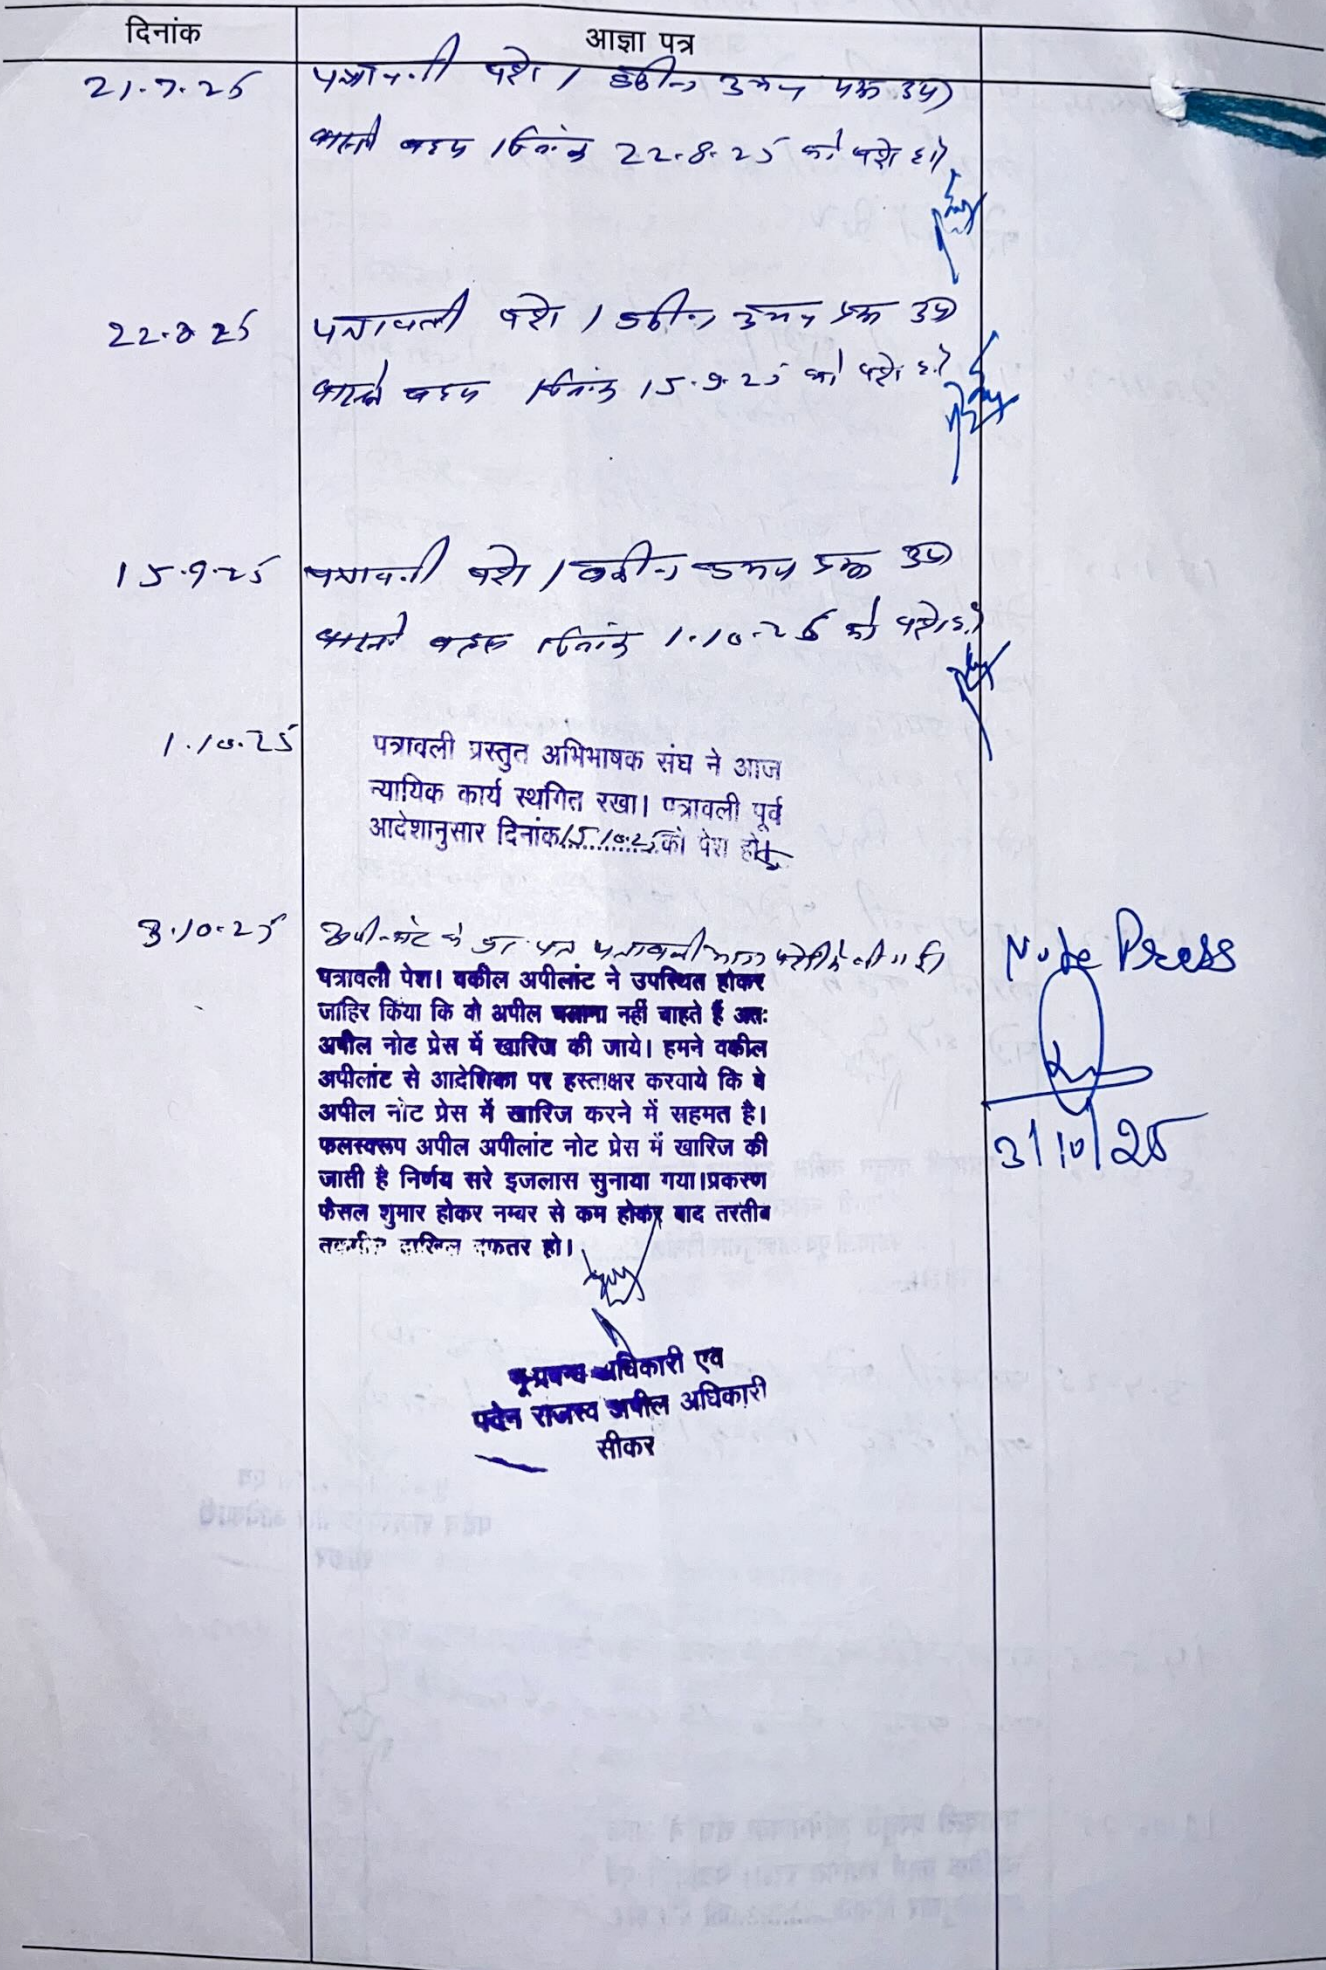 दिनांक
आज्ञा पत्र
21.7.25
पत्रावली पेश / वकील उभय पक्ष उप
वास्ते बहस दिनांक 22.8.25 को पेश हो
22.8.25
पत्रावली पेश / वकील उभय पक्ष उप
वास्ते बहस दिनांक 15.9.25 को पेश हो
15.9.25
पत्रावली पेश / वकील उभय पक्ष उप
वास्ते बहस दिनांक 1.10.25 को पेश हो
1.10.25
पत्रावली प्रस्तुत अभिभाषक संघ ने आज
न्यायिक कार्य स्थगित रखा। पत्रावली पूर्व
आदेशानुसार दिनांक 15.10.25 को पेश हो
3.10.25
अपीलांट के प्रा. पत्र पत्रावली आज पेशी में ली गई
पत्रावली पेश। वकील अपीलांट ने उपस्थित होकर
जाहिर किया कि वो अपील चलाना नहीं चाहते हैं अतः
अपील नोट प्रेस में खारिज की जाये। हमने वकील
अपीलांट से आदेशिका पर हस्ताक्षर करवाये कि वे
अपील नोट प्रेस में खारिज करने में सहमत है।
फलस्वरूप अपील अपीलांट नोट प्रेस में खारिज की
जाती है निर्णय सरे इजलास सुनाया गया।प्रकरण
फैसल शुमार होकर नम्बर से कम होकर बाद तरतीब
तकमील दाखिल दफतर हो।
Note Press
3/10/25
भू-प्रबन्ध अधिकारी एवं
पदेन राजस्व अपील अधिकारी
सीकर